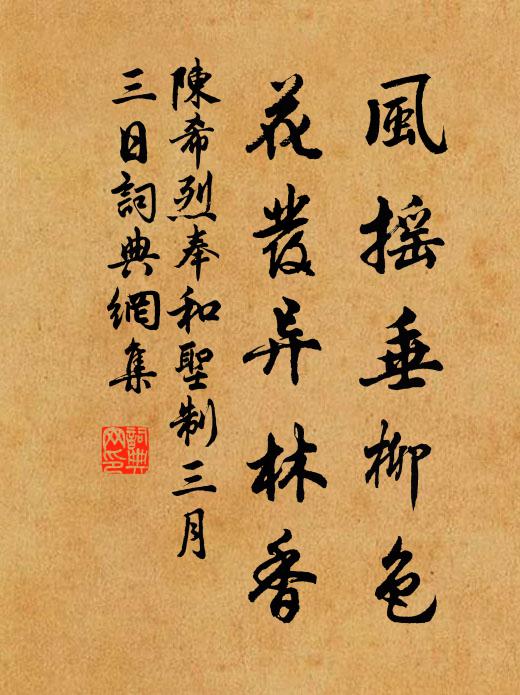 風摇垂柳色
花發异林香
陳希烈奉和聖制三月
三日詞典網集
詞典网印